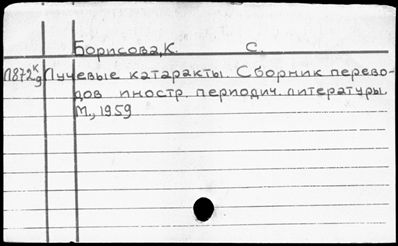 Борисова, К. С.
П872к/9 Лучевые катаракты. Сборник перево-
дов иностр. периодич. литературы.
М., 1959